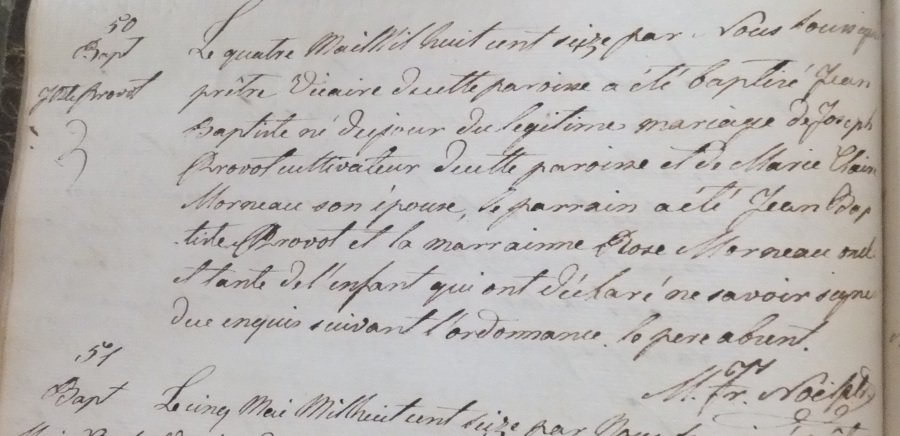 50
Bapt
Jte Provot
Le quatre Mai Mil huit cent seize par Nous soussigné
prêtre Vicaire de cette paroisse a été baptisé Jean
Baptiste né du jour du legitime mariage de Joseph
Provot cultivateur de cette paroisse et de Marie Claire
Morneau son épouse, le parrain a été Jean Bap
tiste Provot et la marrainne Rose Morneau oncle
et tante de l'enfant qui ont déclaré ne savoir signer
de ce enquis suivant l'ordonnance. le pere absent.
M. Fr. Noël ptr
51
Bapt
Le cinq Mai Mil huit cent seize par Nous